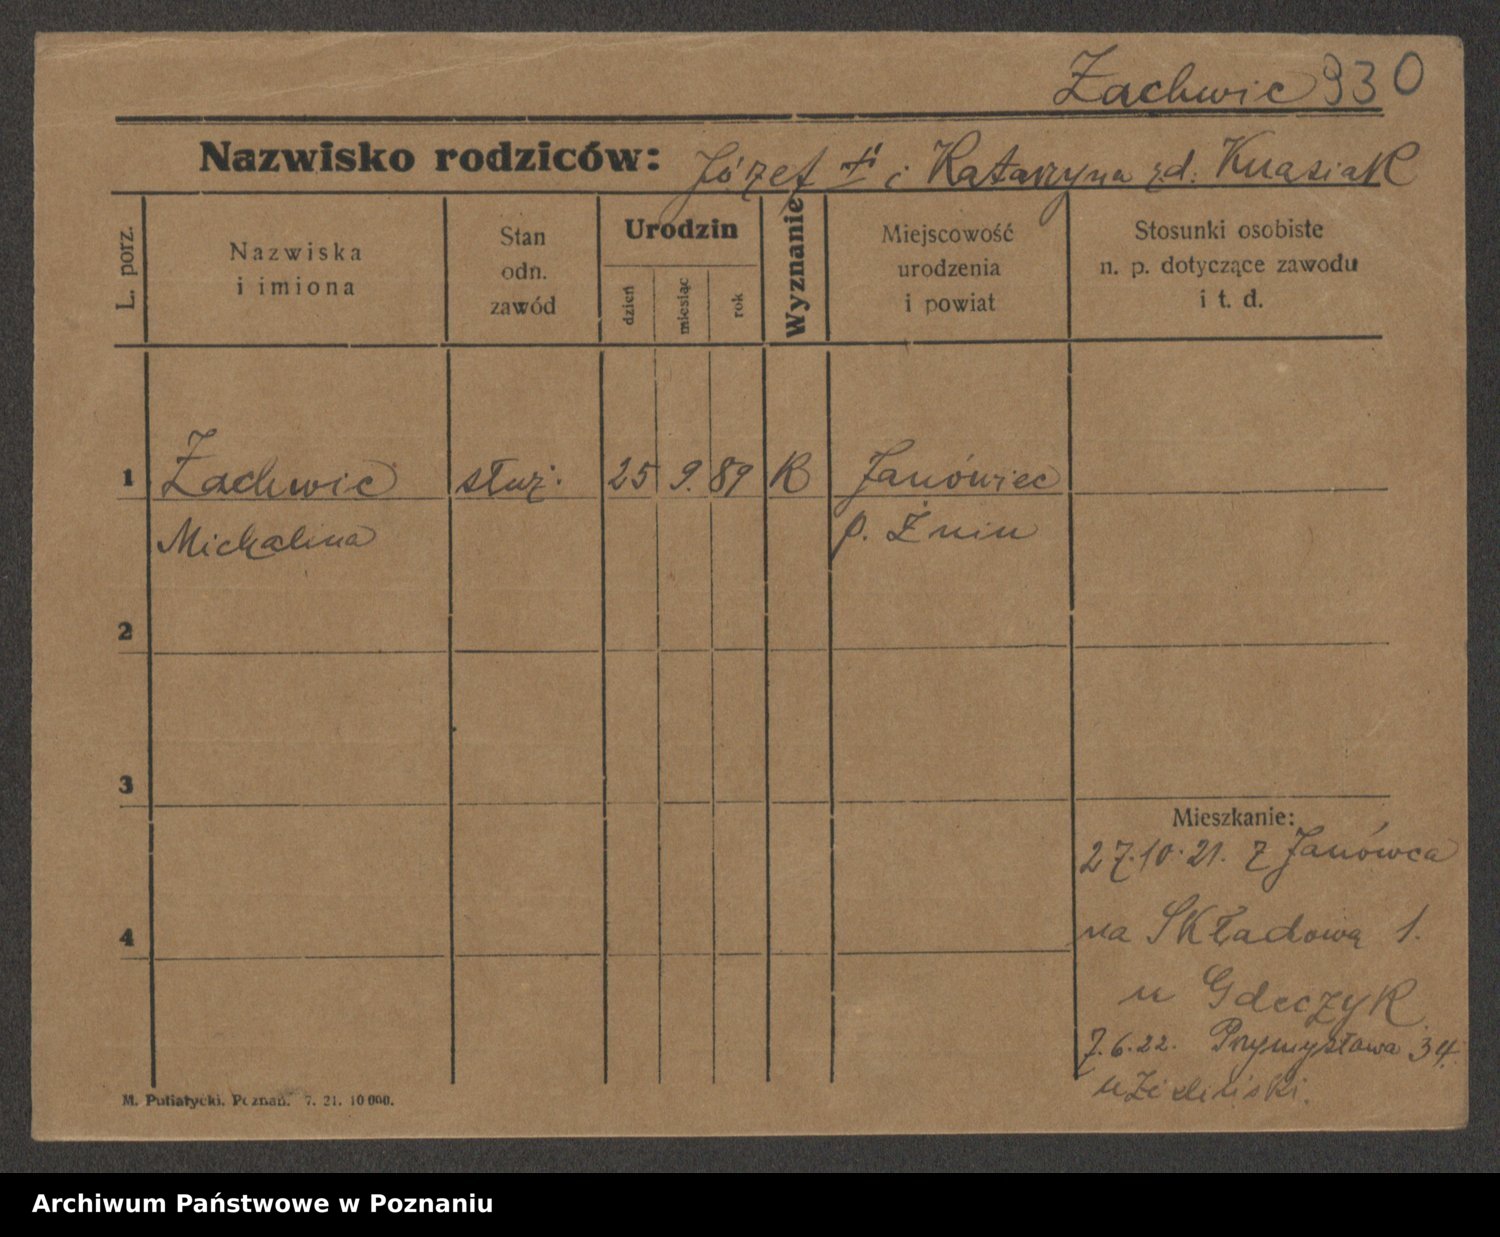 Zachwic 930
Nazwisko rodziców: Józef † i Katarzyna zd. Knasiak
L. porz.
Nazwiska
i imiona
Stan
odn.
zawód
Urodzin
dzień
miesiąc
rok
Wyznanie
Miejscowość
urodzenia
i powiat
Stosunki osobiste
n. p. dotyczące zawodu
i t. d.
1 Zachwic służ. 25 9. 89 K Janówiec
Michalina p. Żnin
2
3
Mieszkanie:
27.10.21. z Janówca
4
na Składową 1.
u Gdeczyk
7.6.22. Przymysłowa 34.
u Zieliński.
M. Putiatycki, Poznań. 7. 21. 10 000.
Archiwum Państwowe w Poznaniu